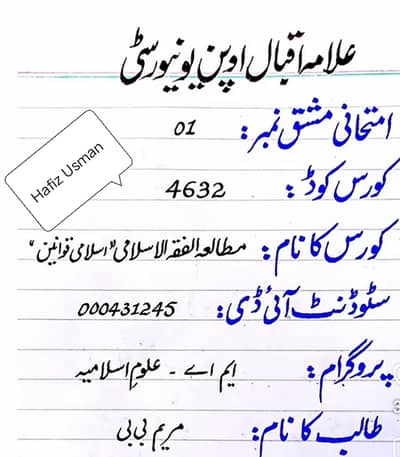 علامہ اقبال اوپن یونیورسٹی
امتحانی مشق نمبر: 01
Hafiz Usman
کورس کوڈ: 4632
کورس کا نام: مطالعہ الفقہ الاسلامی "اسلامی قوانین"
سٹوڈنٹ آئی ڈی: 000431245
پروگرام: ایم اے ۔ علومِ اسلامیہ
طالب کا نام: مریم بی بی